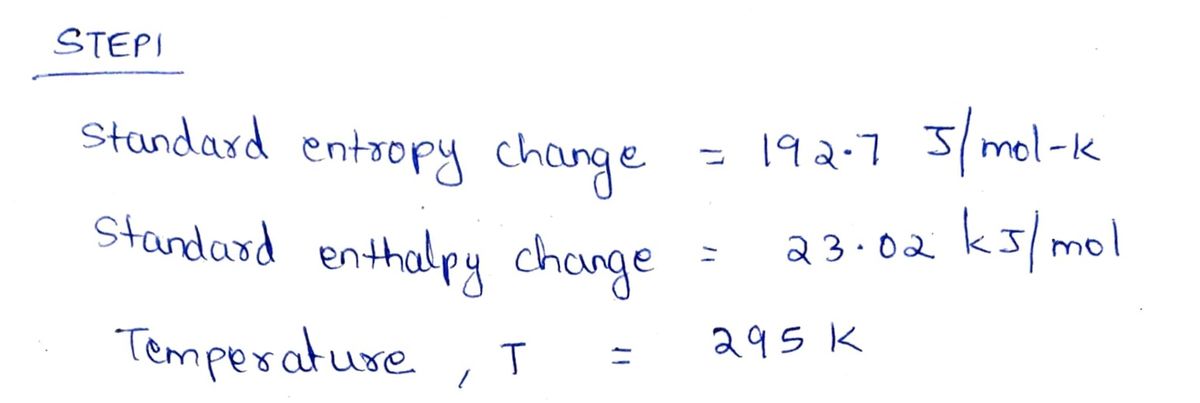 STEP1
Standard entropy change = 192.7 J/mol-k
Standard enthalpy change = 23.02 kJ/mol
Temperature, T = 295 K